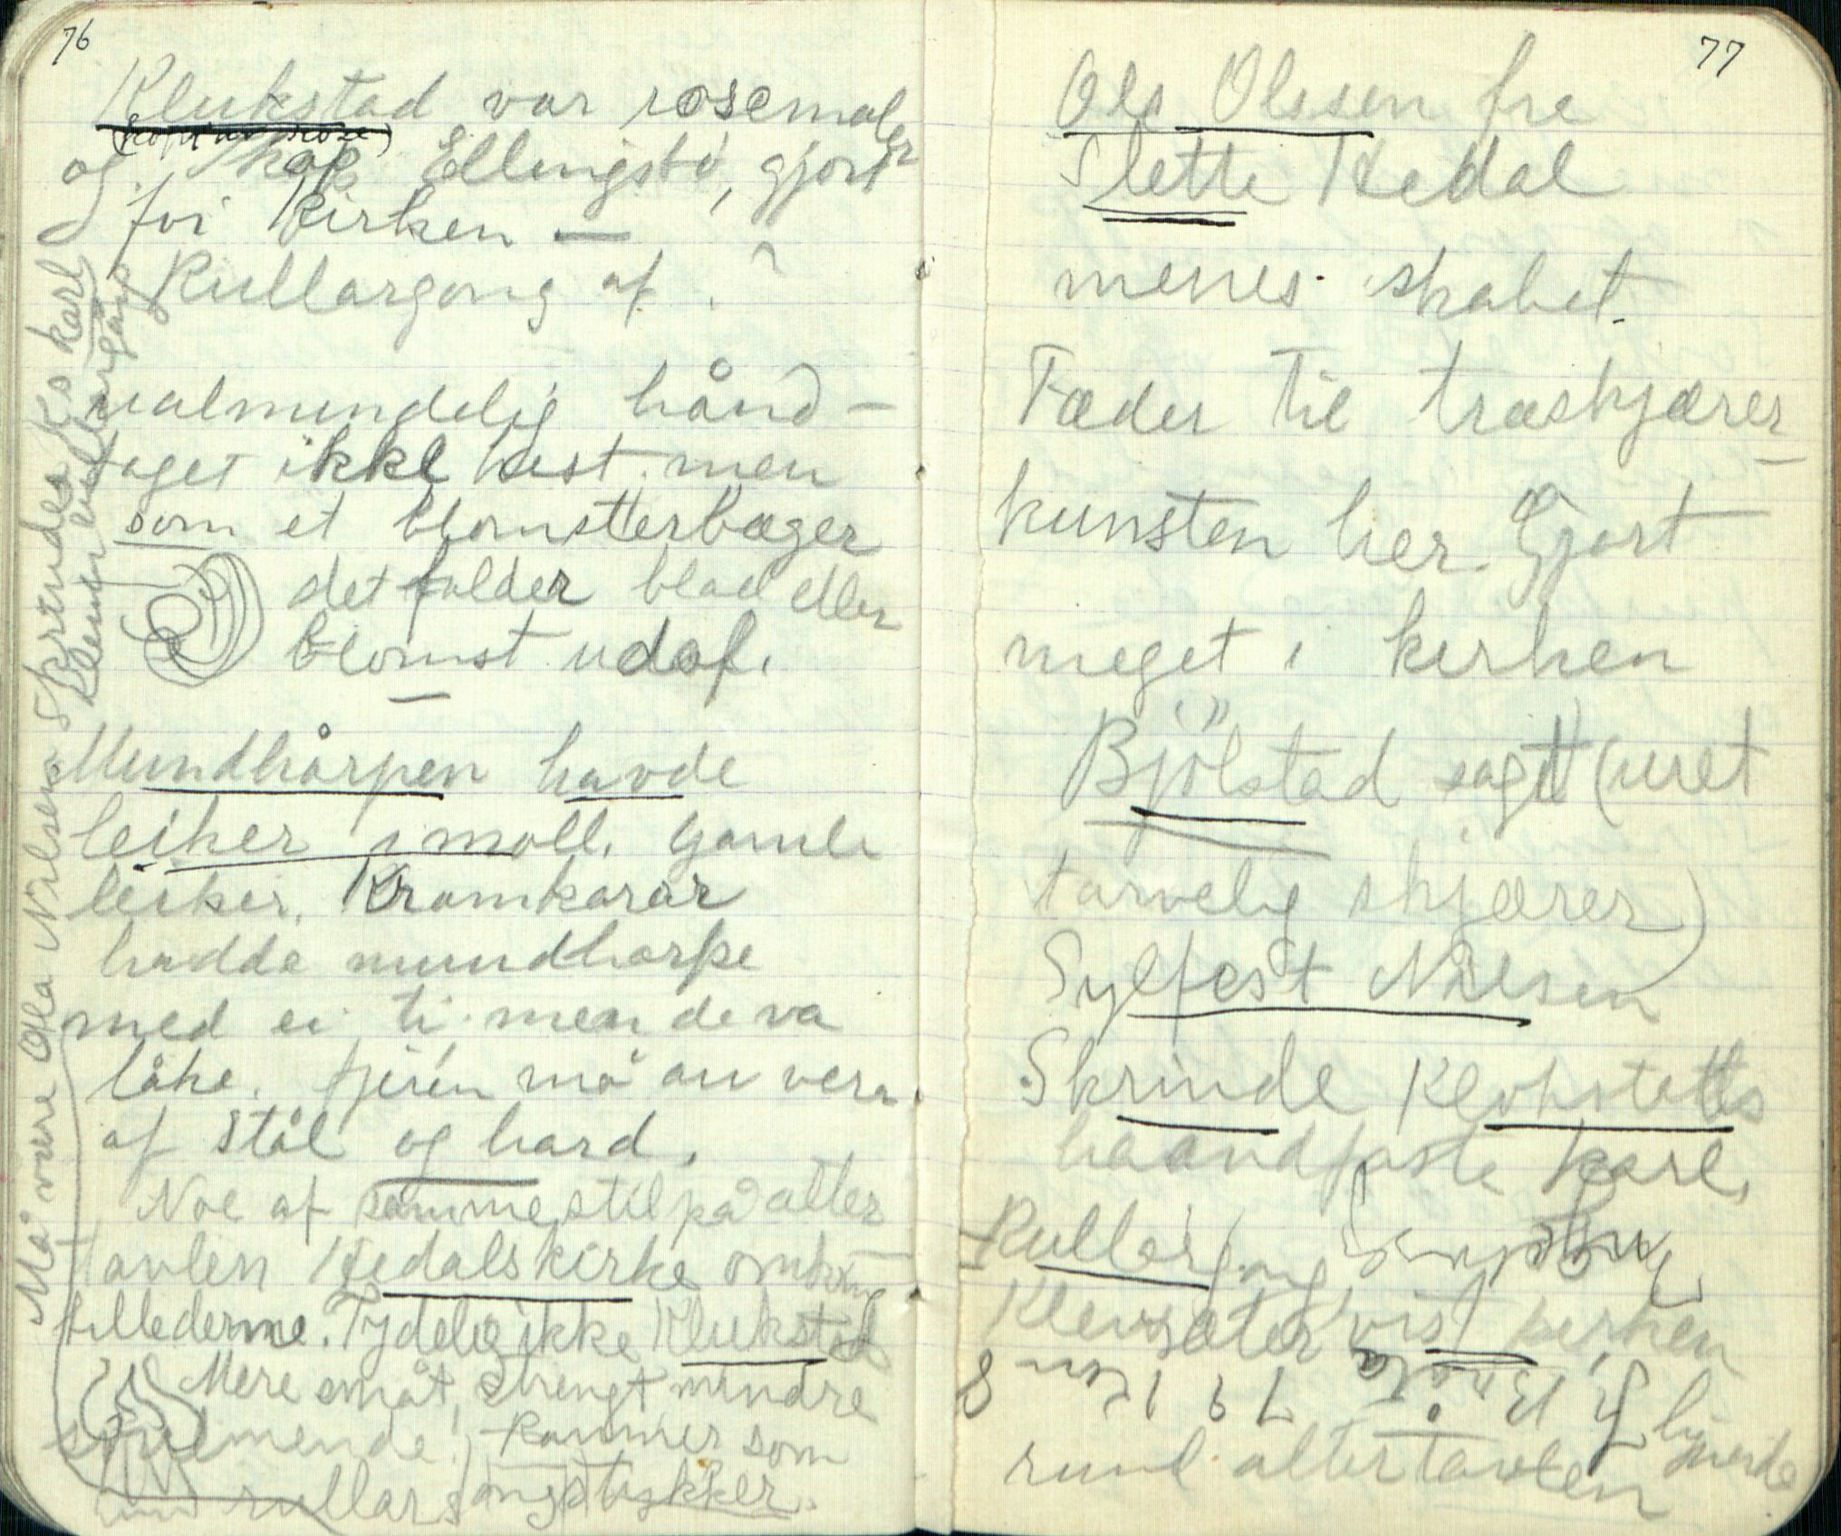 76
Klukstad var rosemaler
og Skap Ellingsbø, gjort
for kirken —
Rullargong af ?
ualmindelig hånd-
laget ikke hest men
som et blomsterbæger
det falder blad eller
blomst udaf.
Mundhårpen havde
leiker i moll. Gamle
leiker. Kramkarar
hadde mundharpe
med ei ti men de va
låke. fjørén må au vera
af stål og hard.
Noe af samme stil på alter
tavlen Hedalskirke omkring
billederne. Tydelig ikke Klukstad
Mere småt, strengt mindre
svulmende. kommer som
rullar
Må være Ola Nilsen Skrindes Ks karl
77
Ola Olssen fra
Slette Hedal
menes skabet.
Fæder til træskjærer-
kunsten her Gjort
meget i kirken
Bjölstad sagt (uret
tarvelig skjærer)
Sylfest Nilsen
Skrinde Klokstads
haandfaste karl,
Rullargong
Klevsæter vist kirken
rund altertavlen